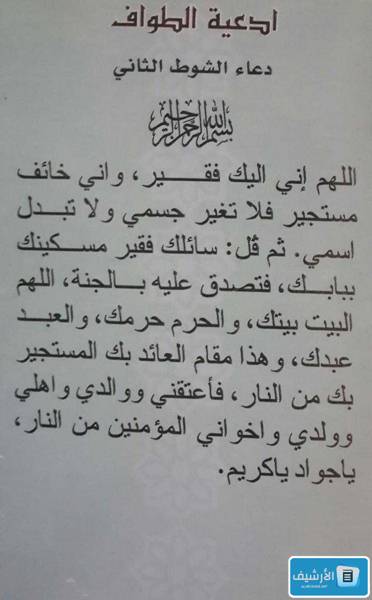 ادعية الطواف
دعاء الشوط الثاني
بسم الله الرحمن الرحيم
اللهم إني اليك فقير، واني خائف
مستجير فلا تغير جسمي ولا تبدل
اسمي. ثم قل: سائلك فقير مسكينك
ببابك، فتصدق عليه بالجنة، اللهم
البيت بيتك، والحرم حرمك، والعبد
عبدك، وهذا مقام العائذ بك المستجير
بك من النار، فأعتقني ووالدي واهلي
وولدي واخواني المؤمنين من النار،
ياجواد ياكريم.
الأرشيف